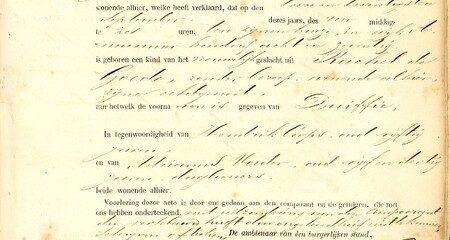 wonende alhier, welke heeft verklaard, dat op den
September dezes jaars, des middags
te zes uren, ten zijnen huize, in wijk A
nummer honderd acht en
is geboren een kind van het vrouwelijk geslacht uit Rachel de
Goede, zonder beroep, wonende alhier,
zijne echtgenoot,
aan hetwelk de voorna is gegeven van Duifje,
In tegenwoordigheid van Hendrik oud vijftig
jaren,
en van Adrianus oud vijf en dertig
jaren, daglooners,
beide wonende alhier.
Voorlezing dezer acte is door ons gedaan aan den comparant en de getuigen, die met
ons hebben onderteekend, met uitzondering van den Comparant
die verklaard heeft
schrijven of De ambtenaar van den burgerlijken stand,